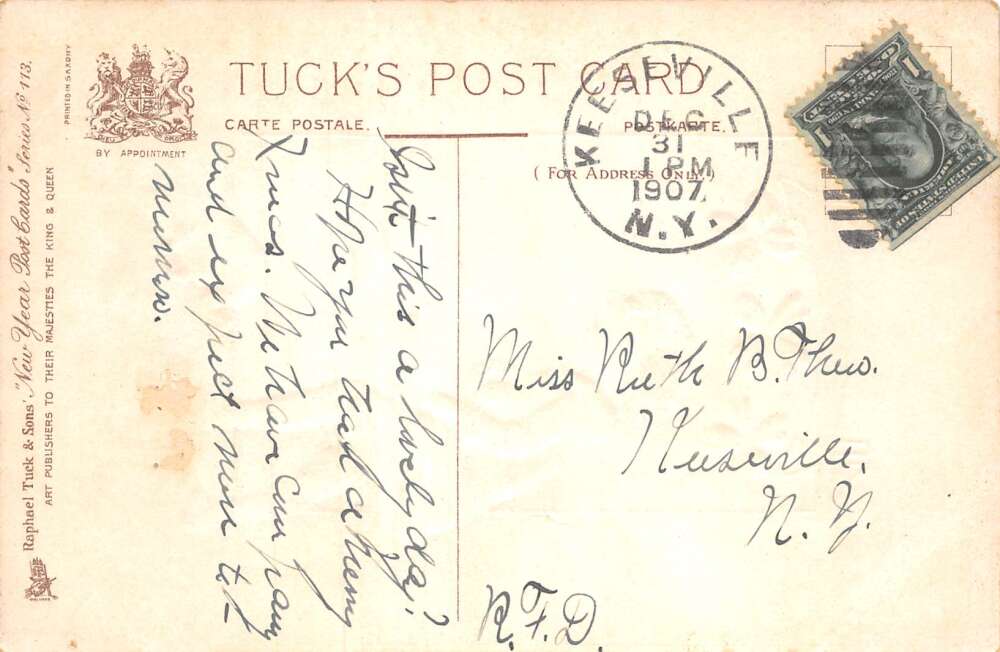 TUCK'S POST CARD
CARTE POSTALE.
POSTKARTE.
( FOR ADDRESS ONLY. )
BY APPOINTMENT
PRINTED IN SAXONY
Raphael Tuck & Sons' "New Year Post Cards" Series No 113.
ART PUBLISHERS TO THEIR MAJESTIES THE KING & QUEEN
KEESEVILLE
DEC
31
1 PM
1907
N.Y.
Isn't this a lovely day?
Hope you had a merry
Xmas. We have company
and expect more to-
morrow.
Miss Ruth B. Thew.
Keeseville,
N. Y.
R. F. D.